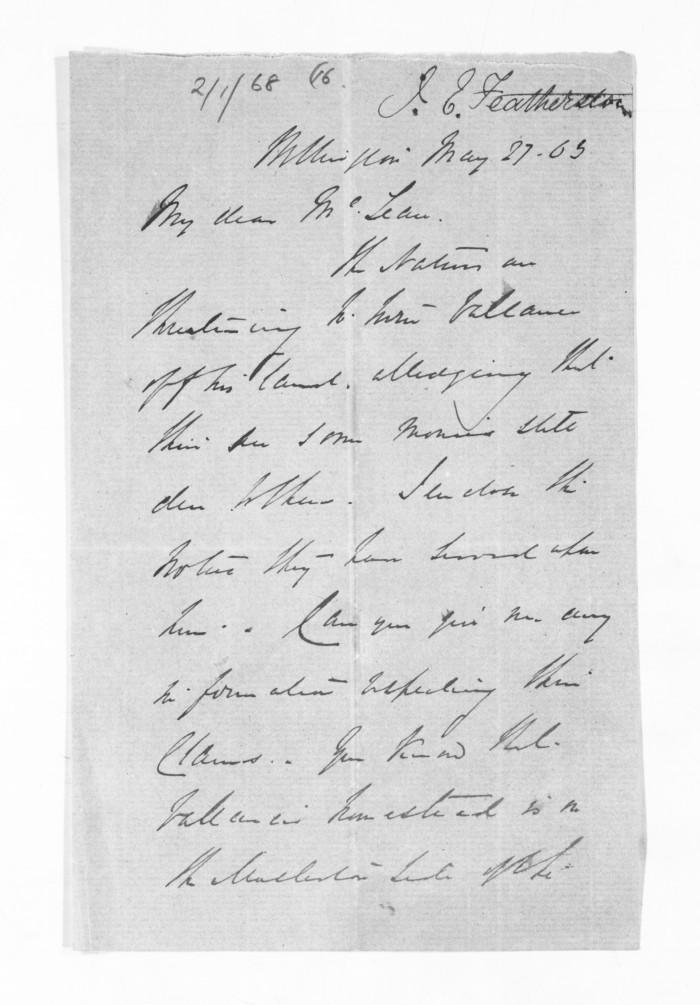 2/1/68 (16.
I. E. Featherston
Wellington May 27-63
My dear McLean.
The Natives are
threatening to turn Vallance
off his land. alledging that
there are some monies still
due to them. I enclose the
notice they have served upon
him.. Can you give me any
information respecting their
Claims.. You know that
Vallance's homestead is on
the Masterton side of the